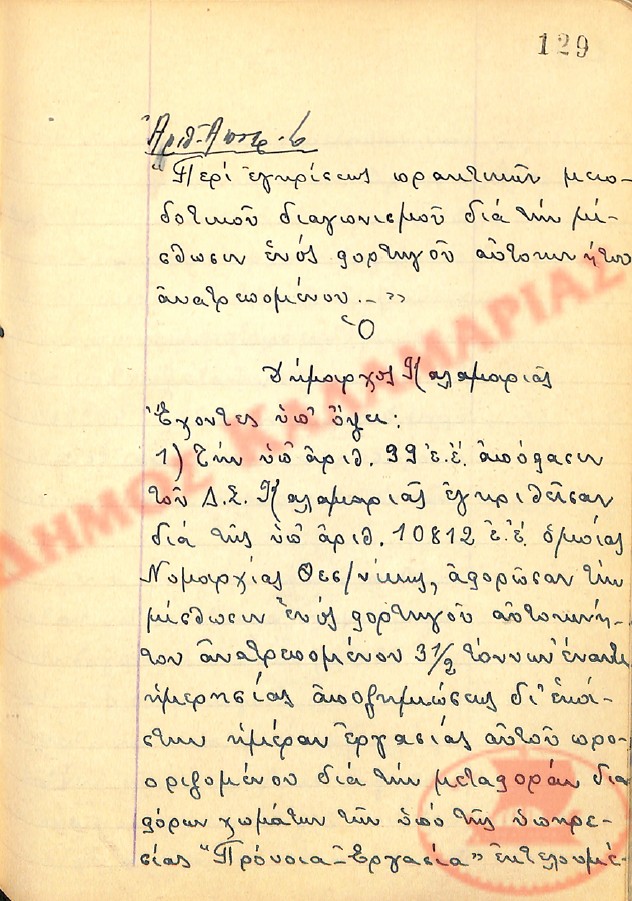 129
Ἀριθ. Ἀποφ. 6
"Περί ἐγκρίσεως πρακτικῶν μειο-
δοτικοῦ διαγωνισμοῦ διά τήν μί-
σθωσιν ἑνός φορτηγοῦ αὐτοκινήτου
ἀνατρεπομένου.-"
Ὁ
Δήμαρχος Καλαμαριᾶς
Ἔχοντες ὑπ' ὄψει:
1) Τήν ὑπ' ἀριθ. 99 ἐ.ἔ. ἀπόφασιν
τοῦ Δ.Σ. Καλαμαριᾶς ἐγκριθεῖσαν
διά τῆς ὑπ' ἀριθ. 10812 ἐ.ἔ. ὁμοίας
Νομαρχίας Θεσ/νίκης, ἀφορῶσαν τήν
μίσθωσιν ἑνός φορτηγοῦ αὐτοκινή-
του ἀνατρεπομένου 3½ τόννων ἔναντι
ἡμερησίας ἀποζημιώσεως δι' ἑκά-
στην ἡμέραν ἐργασίας αὐτοῦ προ-
οριζομένου διά τήν μεταφοράν δια
φόρων χωμάτων τῶν ὑπό τῆς ὑπηρε-
σίας "Πρόνοια-Ἐργασία" ἐκτελουμέ-
ΔΗΜΟΣ ΚΑΛΑΜΑΡΙΑΣ